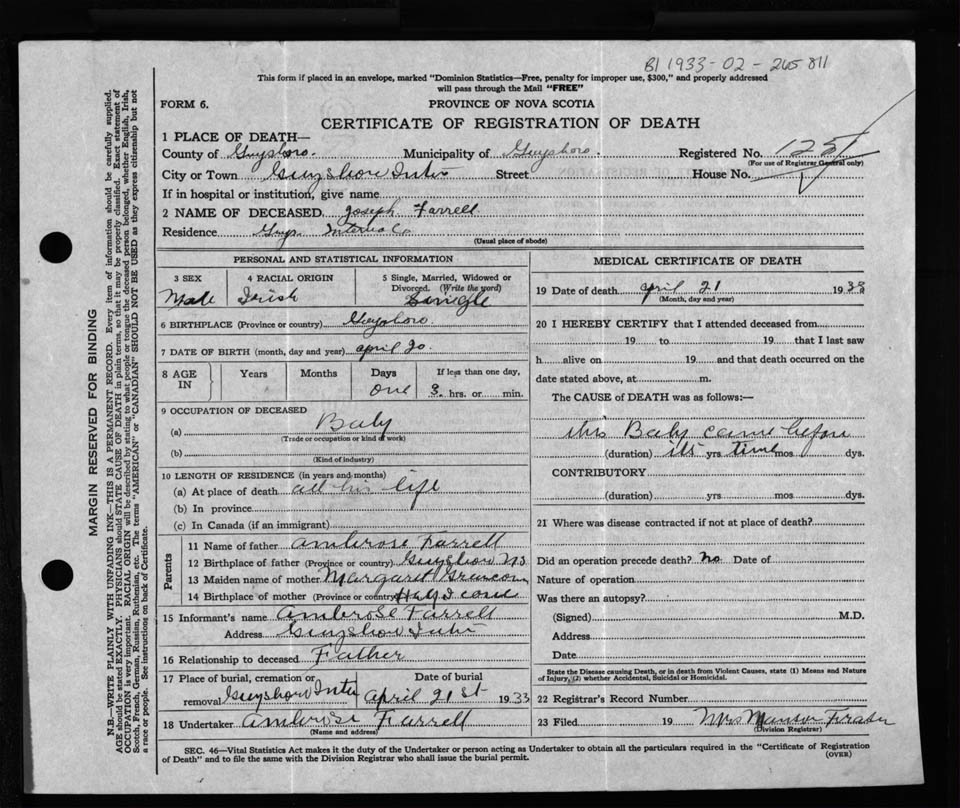 B1 1933-02-265811
This form if placed in an envelope, marked "Dominion Statistics—Free, penalty for improper use, $300," and properly addressed
will pass through the Mail "FREE"
FORM 6.
PROVINCE OF NOVA SCOTIA
CERTIFICATE OF REGISTRATION OF DEATH
1 PLACE OF DEATH—
County of Guysboro. Municipality of Guysboro. Registered No.
(For use of Registrar General only)
City or Town Guyshow Street House No.
If in hospital or institution, give name
2 NAME OF DECEASED Joseph Farrell
Residence Guys.
(Usual place of abode)
PERSONAL AND STATISTICAL INFORMATION
3 SEX 4 RACIAL ORIGIN 5 Single, Married, Widowed or
Divorced. (Write the word)
Male Irish Single
6 BIRTHPLACE (Province or country) Guysboro
7 DATE OF BIRTH (month, day and year) april 20
8 AGE IN Years Months Days If less than one day,
one 3 hrs. or min.
9 OCCUPATION OF DECEASED
(a) Baby
(Trade or occupation or kind of work)
(b)
(Kind of industry)
10 LENGTH OF RESIDENCE (in years and months)
(a) At place of death all his life
(b) In province
(c) In Canada (if an immigrant)
Parents
11 Name of father Ambrose Farrell
12 Birthplace of father (Province or country) Guyshow NS
13 Maiden name of mother Margaret
14 Birthplace of mother (Province or country)
15 Informant's name Ambrose Farrell
Address Guyshow
16 Relationship to deceased Father
17 Place of burial, cremation or Date of burial
removal Guyshow April 21st 1933
18 Undertaker Ambrose Farrell
(Name and address)
MEDICAL CERTIFICATE OF DEATH
19 Date of death april 21 1933
(Month, day and year)
20 I HEREBY CERTIFY that I attended deceased from
19 to 19 that I last saw
h alive on 19 and that death occurred on the
date stated above, at m.
The CAUSE of DEATH was as follows:—
this Baby came before
(duration) its yrs time mos dys.
CONTRIBUTORY
(duration) yrs mos dys.
21 Where was disease contracted if not at place of death?
Did an operation precede death? no Date of
Nature of operation
Was there an autopsy?
(Signed) M.D.
Address
Date
State the Disease causing Death, or in death from Violent Causes, state (1) Means and Nature
of Injury, (2) whether Accidental, Suicidal or Homicidal.
22 Registrar's Record Number
23 Filed 19 Mrs
(Division Registrar)
SEC. 46—Vital Statistics Act makes it the duty of the Undertaker or person acting as Undertaker to obtain all the particulars required in the "Certificate of Registration
of Death" and to file the same with the Division Registrar who shall issue the burial permit. (OVER)
MARGIN RESERVED FOR BINDING
N.B.—WRITE PLAINLY WITH UNFADING INK—THIS IS A PERMANENT RECORD. Every item of information should be carefully supplied.
AGE should be stated EXACTLY. PHYSICIANS should STATE CAUSE OF DEATH in plain terms, so that it may be properly classified. Exact statement of
OCCUPATION is very important. RACIAL ORIGIN will be described by stating to what people or tongue the deceased person belonged, whether English, Irish,
Scotch, French, German, Russian, Ruthenian, etc. The terms "AMERICAN" or "CANADIAN" SHOULD NOT BE USED as they express citizenship but not
a race or people. See instructions on back of Certificate.